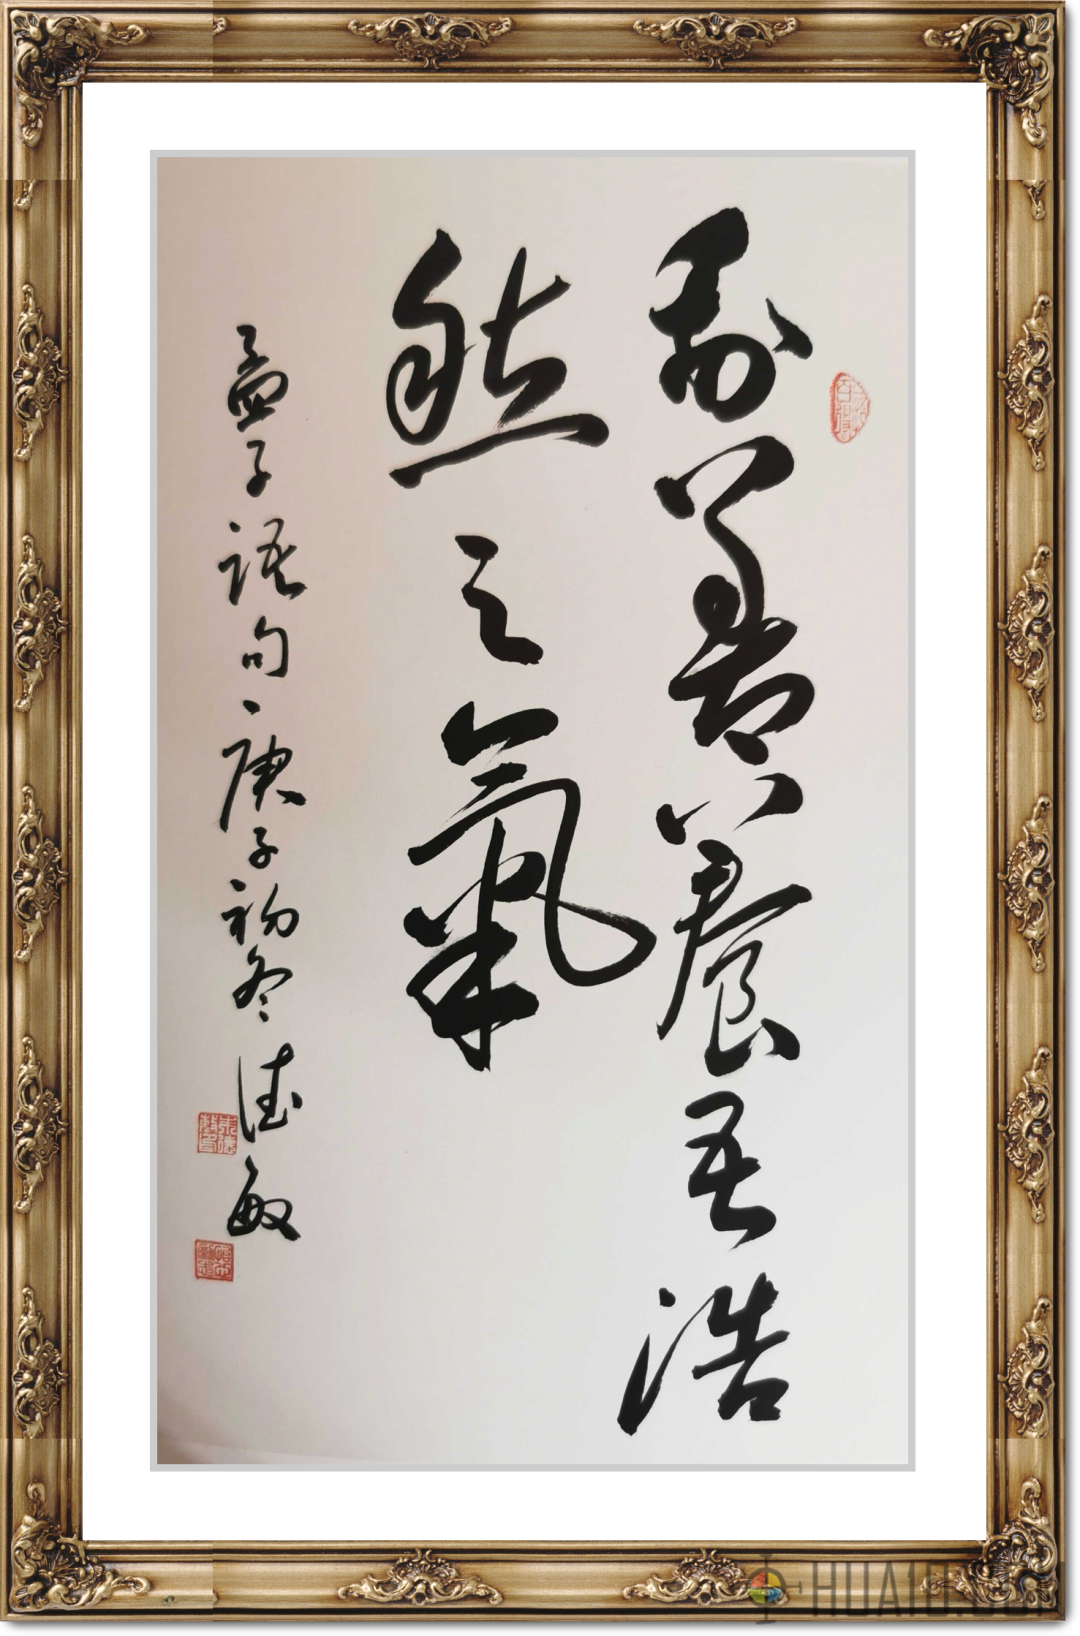 我善养吾浩
然之氣
孟子語句、庚子初冬德敏